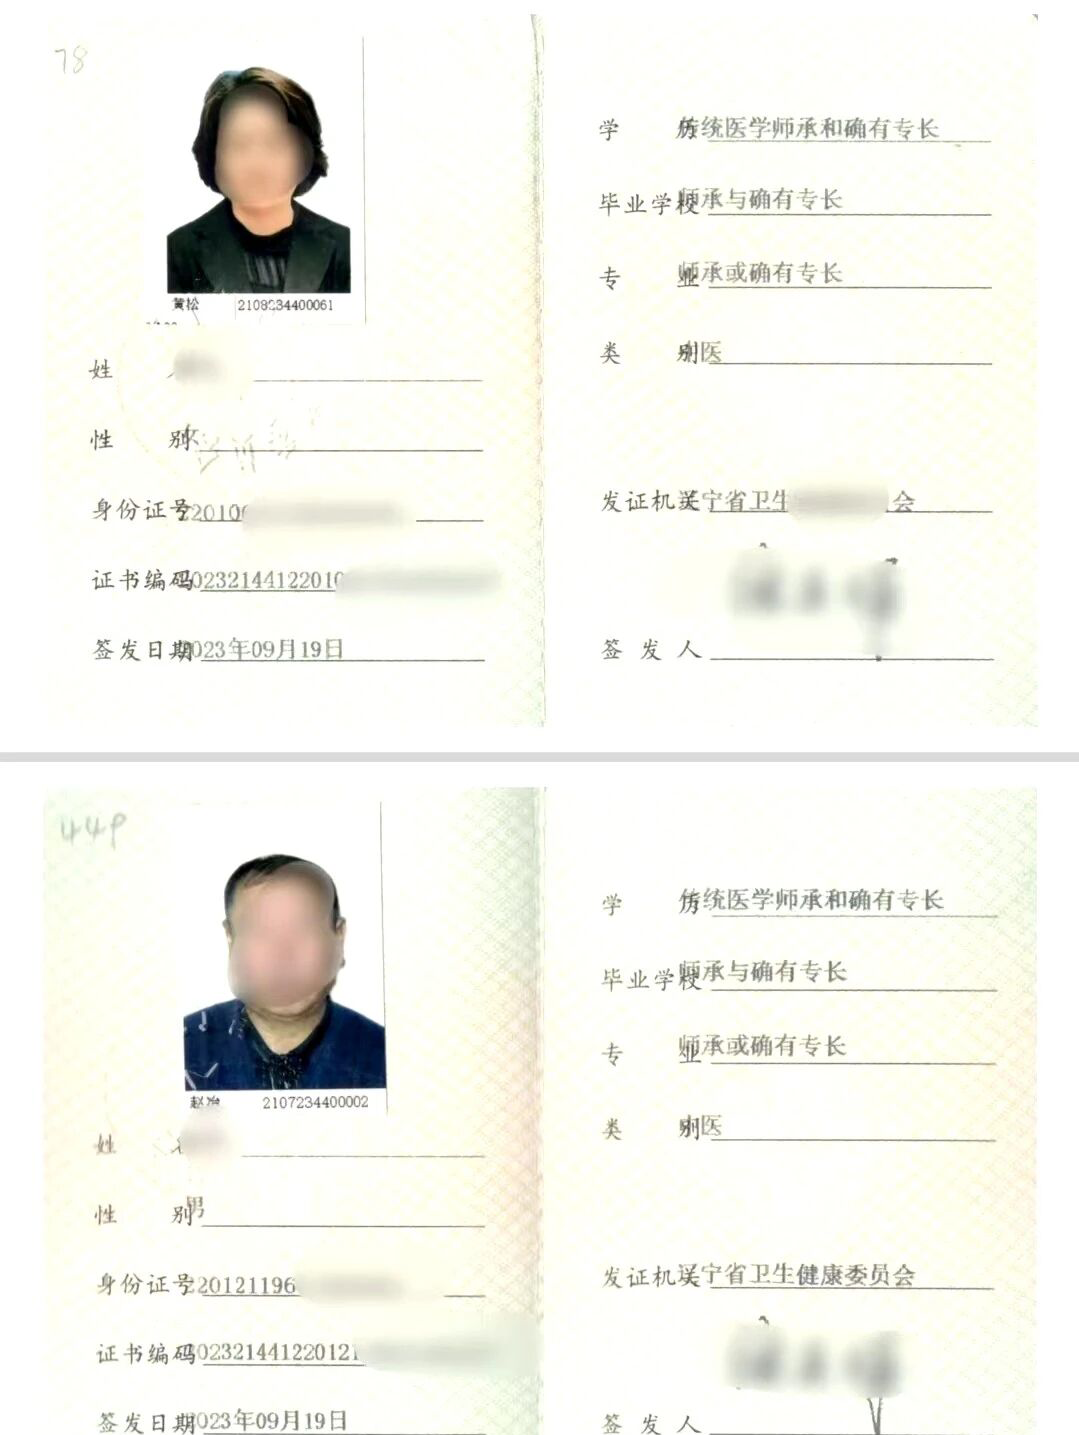 78
黄松 2108234400061
姓
性 别
身份证号 220106
证书编码 2023214412201
签发日期 2023年09月19日
学 历 传统医学师承和确有专长
毕业学校 师承与确有专长
专 业 师承或确有专长
类 别 中医
发证机关 辽宁省卫生 会
签 发 人
449
赵冶 2107234400002
姓
性 别 男
身份证号 220121196
证书编码 20232144122012
签发日期 2023年09月19日
学 历 传统医学师承和确有专长
毕业学校 师承与确有专长
专 业 师承或确有专长
类 别 中医
发证机关 辽宁省卫生健康委员会
签 发 人